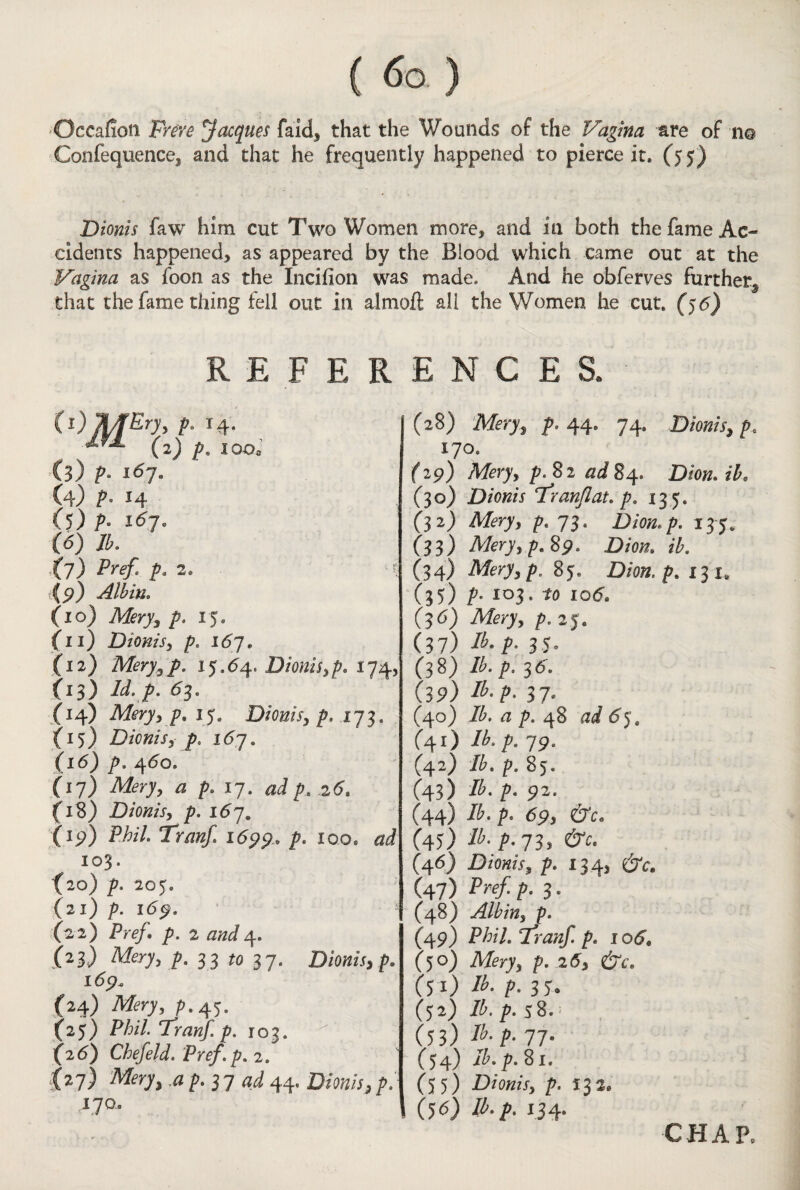 ( 60 )
Occaſion Frere Jacques ſaid, that the Wounds of the Vagina are of no
Conſequence, and that he frequently happened to pierce it. (55)
Dionis ſaw him cut Two Women more, and in both the ſame Ac-
cidents happened, as appeared by the Blood which came out at the
Vagina as ſoon as the Inciſion was made. And he obſerves further,
that the ſame thing fell out in almoſt all the Women he cut. (56)
REFERENCES.
(1) MEry, p. 14.
(2) p. 100.
(3) p. 167.
(4) p. 14
(5) p. 167.
(6) Ib.
(7) Pref. p. 2.
(9) Albin.
(10) Mery, p. 15.
(11) Dionis, p. 167.
(12) Mery, p. 15.64. Dionis, p. 174,
(13) Id. p. 63.
(14) Mery, p. 15. Dionis, p. 173.
(15) Dionis, p. 167.
(16) p. 460.
(17) Mery, a p. 17. ad p. 26.
(18) Dionis, p. 167.
(19) Phil. Tranſ. 1699. p. 100. ad
103.
(20) p. 205.
(21) p. 169.
(22) Pref. p. 2 and 4.
(23) Mery, p. 33 to 37. Dionis, p.
169.
(24) Mery, p. 45.
(25) Phil. Tranſ. p. 103.
(26) Cheſeld. Pref. p. 2.
(27) Mery, a p. 37 ad 44. Dionis, p.
170.
(28) Mery, p. 44. 74. Dionis, p.
170.
(29) Mery, p. 82 ad 84. Dion. ib.
(30) Dionis Tranſlat. p. 135.
(32) Mery, p. 73. Dion. p. 135.
(33) Mery, p. 89. Dion. ib.
(34) Mery, p. 85. Dion. p. 131.
(35) p. 103. to 106.
(36) Mery, p. 25.
(37) Ib. p. 35.
(38) Ib. p. 36.
(39) Ib. p. 37.
(40) Ib. a p. 48 ad 65.
(41) Ib. p. 79.
(42) Ib. p. 85.
(43) Ib. p. 92.
(44) Ib. p. 69, &c.
(45) Ib. p. 73, &c.
(46) Dionis, p. 134, &c.
(47) Pref. p. 3.
(48) Albin, p.
(49) Phil. Tranſ. p. 106.
(50) Mery, p. 26, &c.
(51) Ib. p. 35.
(52) Ib. p. 58.
(53) Ib. p. 77.
(54) Ib. p. 81.
(55) Dionis, p. 132.
(56) Ib. p. 134.
CHAP.